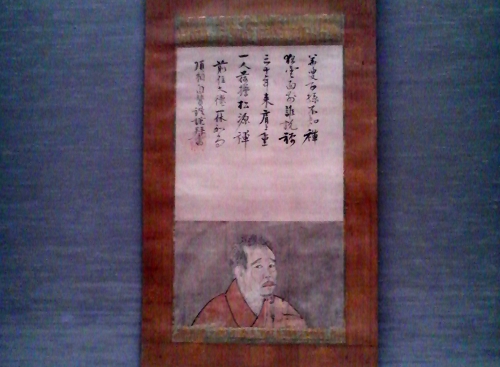 華叟子孫不知禅
狂雲面前誰説禅
三十年来肩上重
一人荷擔松源禅
前住大徳一休和尚
頂相自賛